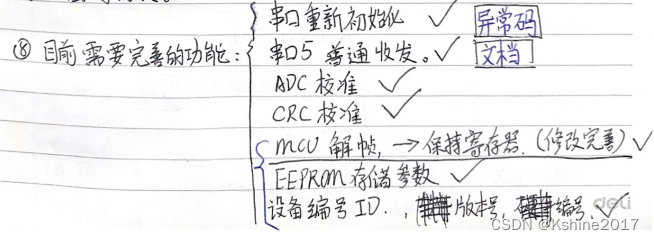 串口重新初始化 ✓ 异常码
⑧ 目前需要完善的功能: 串口5 普通收发。✓ 文档
ADC 校准 ✓
CRC 校准 ✓
MCU 解帧, → 保持寄存器. (修改完善) ✓
EEPROM 存储参数 ✓
设备编号 ID., 版本号, 编号. ✓
deli
CSDN @Kshine2017